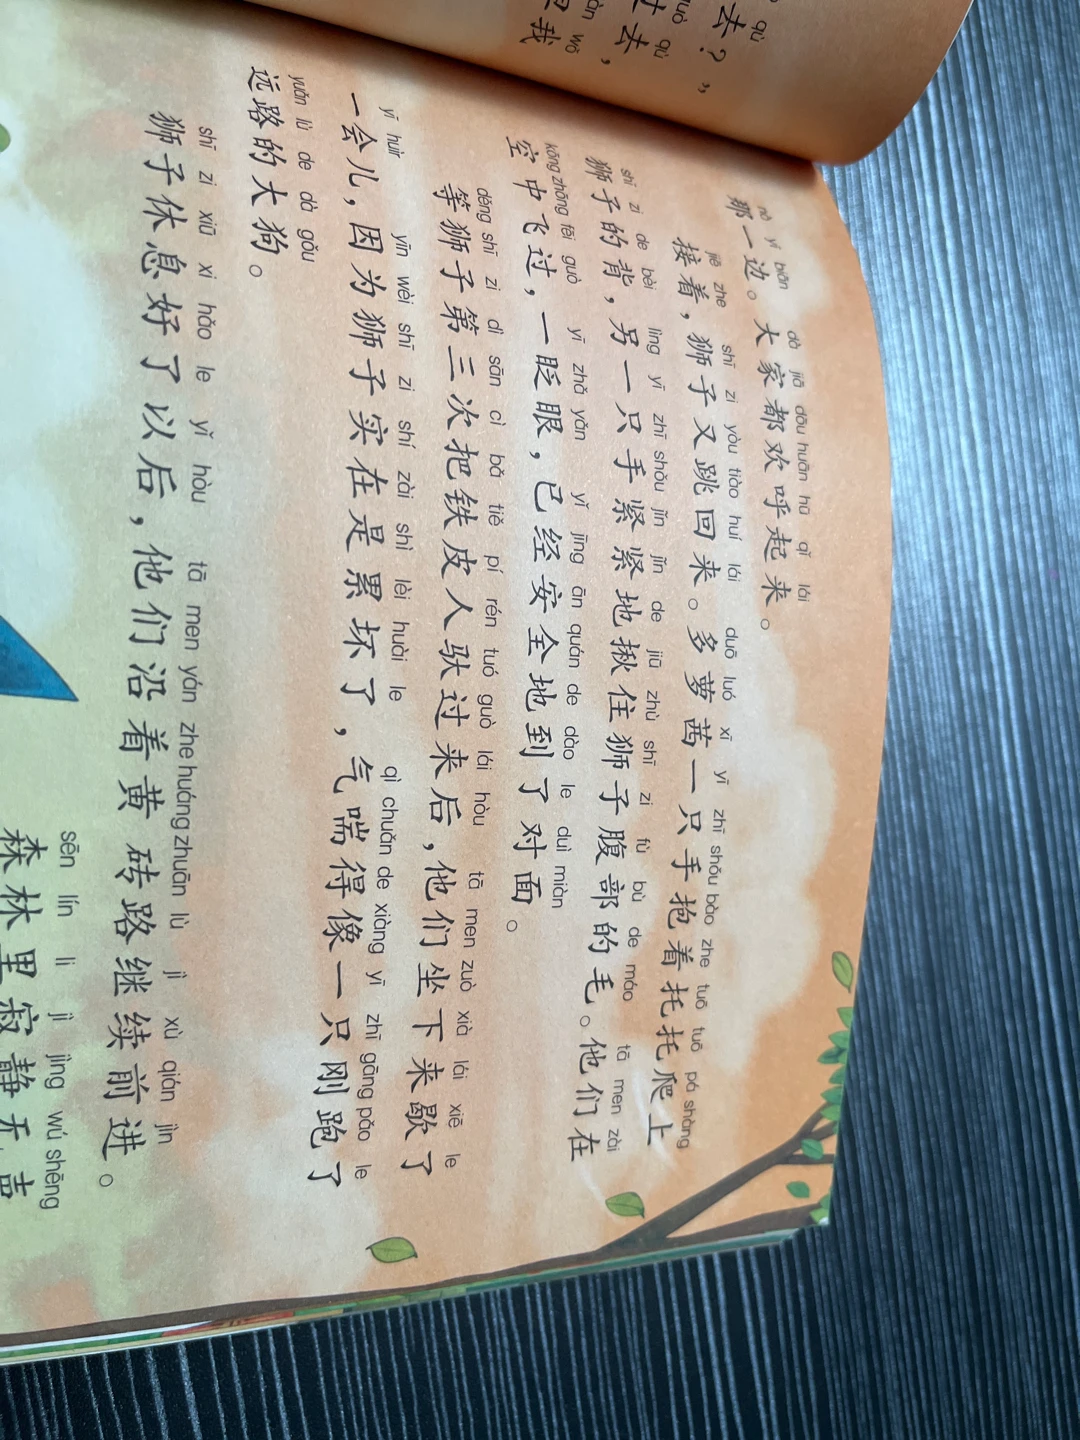 qù
去？，
qù
去，
wǒ
我
nà yī biān dà jiā dōu huān hū qǐ lái
那一边。大家都欢呼起来。
jiē zhe shī zi yòu tiào huí lái duō luó xī yī zhī shǒu bào zhe tuō tuō pá shàng
接着，狮子又跳回来。多萝茜一只手抱着托托爬上
shī zi de bèi lìng yī zhī shǒu jǐn jǐn de jiū zhù shī zi fù bù de máo tā men zài
狮子的背，另一只手紧紧地揪住狮子腹部的毛。他们在
kōng zhōng fēi guò yī zhǎ yǎn yǐ jīng ān quán de dào le duì miàn
空中飞过，一眨眼，已经安全地到了对面。
děng shī zi dì sān cì bǎ tiě pí rén tuó guò lái hòu tā men zuò xià lái xiē le
等狮子第三次把铁皮人驮过来后，他们坐下来歇了
yī huìr yīn wèi shī zi shí zài shì lèi huài le qì chuǎn de xiàng yī zhī gāng pǎo le
一会儿，因为狮子实在是累坏了，气喘得像一只刚跑了
yuǎn lù de dà gǒu
远路的大狗。
shī zi xiū xi hǎo le yǐ hòu tā men yán zhe huáng zhuān lù jì xù qián jìn
狮子休息好了以后，他们沿着黄砖路继续前进。
sēn lín li jì jìng wú shēng
森林里寂静无声